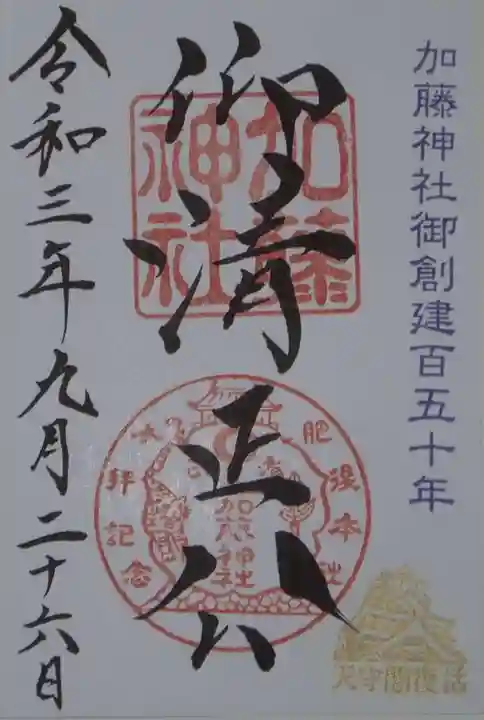 加藤神社御創建百五十年
御清正公
加藤神社
肥後本社
参拝記念
加藤神社
天守閣復活
令和三年九月二十六日